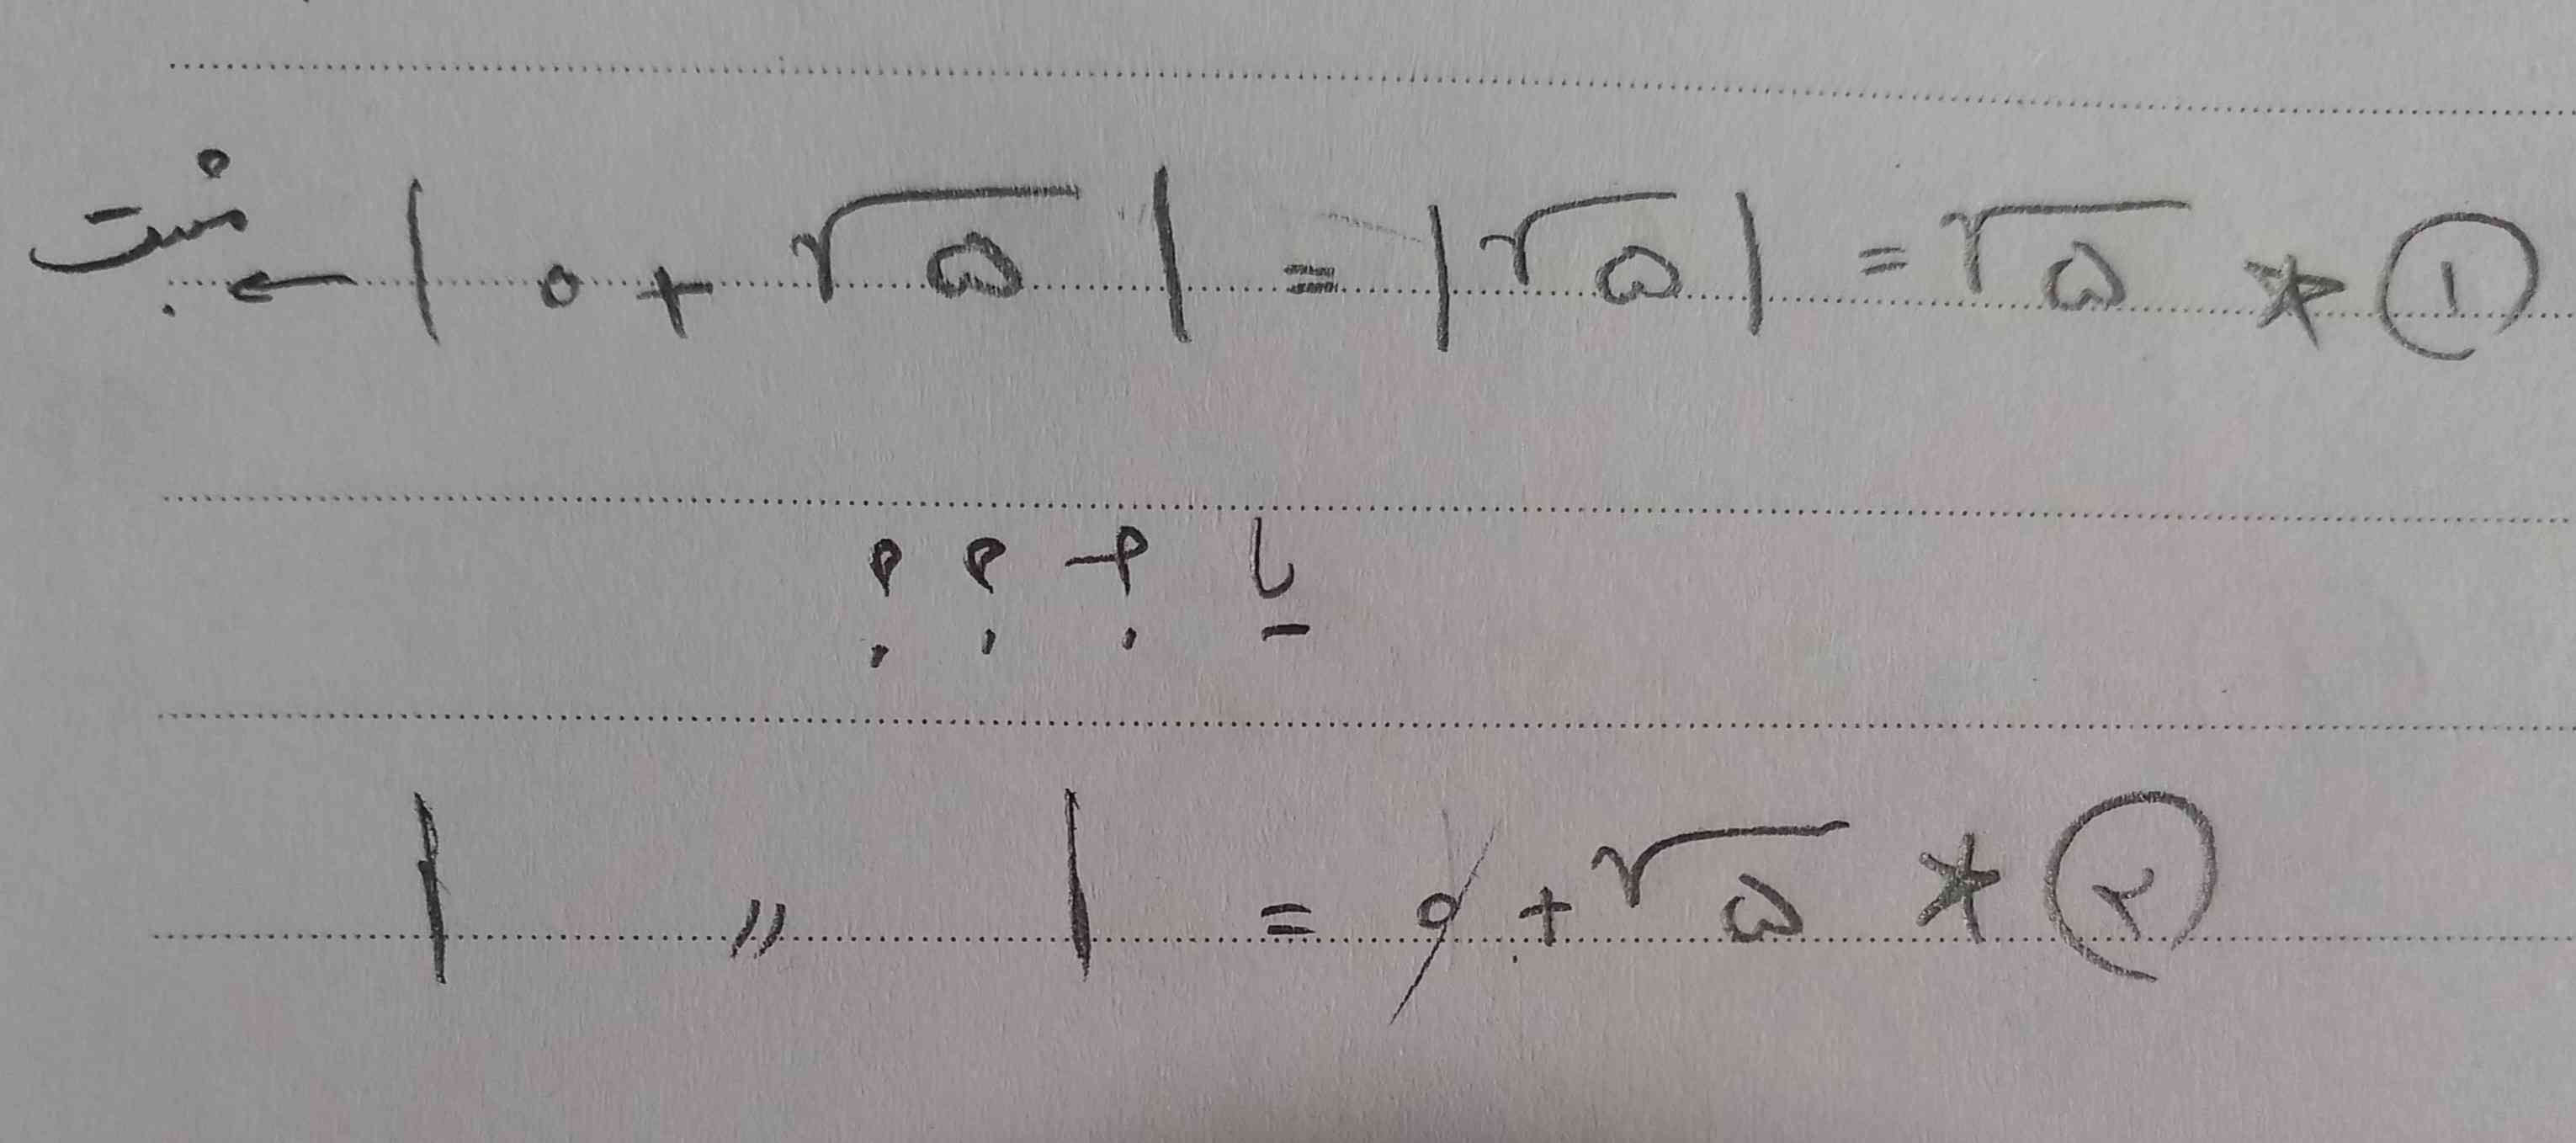 مثبت ← | ० + √۵ | = | √۵ | = √۵ * ①
یا ؟ ؟ ؟
| 〃 | = ० + √۵ * ②